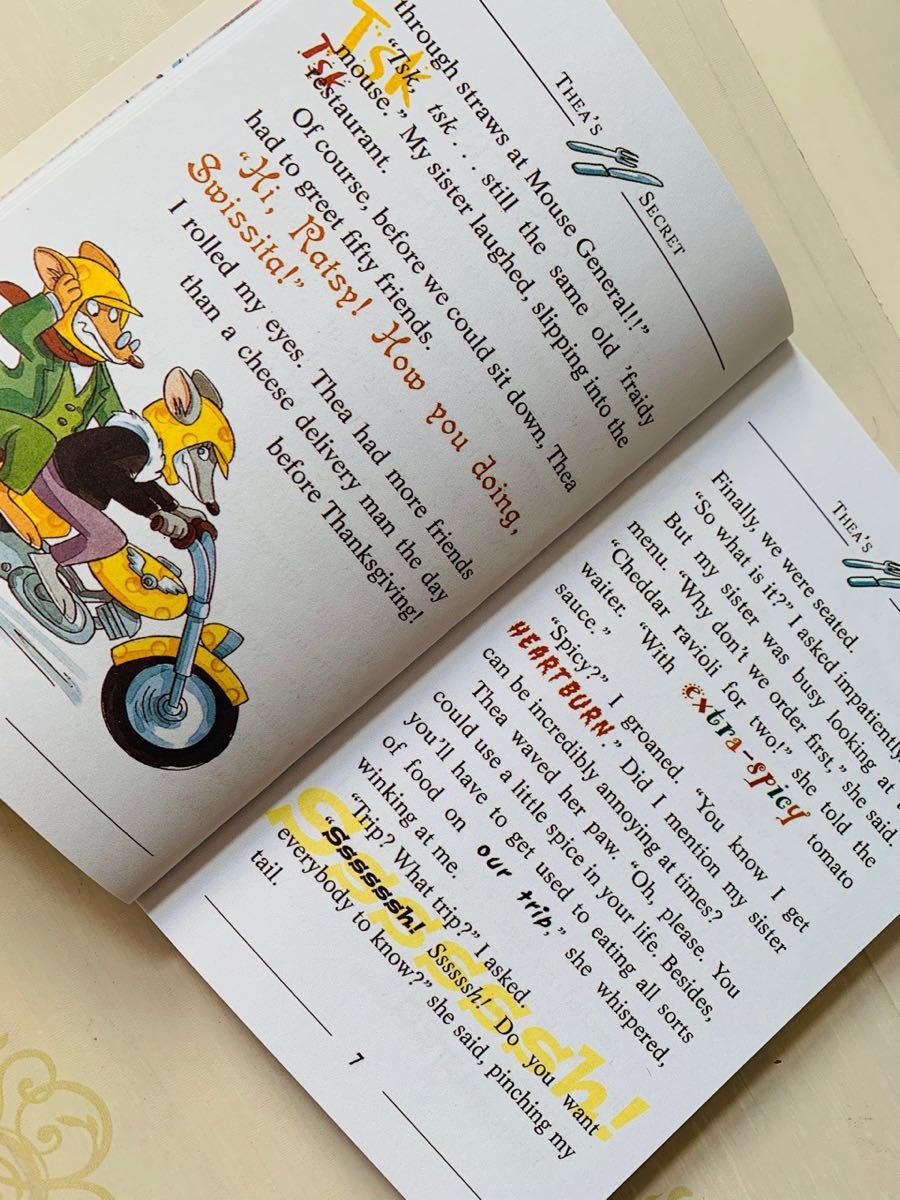 THEA'S SECRET
through straws at Mouse General!!”
Tsk
Tsk
“Tsk, tsk . . . still the same old ’fraidy
mouse.” My sister laughed, slipping into the
restaurant.
Of course, before we could sit down, Thea
had to greet fifty friends.
“Hi, Ratsy! How you doing,
Swissita!”
I rolled my eyes. Thea had more friends
than a cheese delivery man the day
before Thanksgiving!
THEA'S
Finally, we were seated.
“So what is it?” I asked impatiently.
But my sister was busy looking at
menu. “Why don’t we order first,” she said.
“Cheddar ravioli for two!” she told the
waiter. “With extra-spicy tomato
sauce.”
“Spicy?” I groaned. “You know I get
HEARTBURN.” Did I mention my sister
can be incredibly annoying at times?
Thea waved her paw. “Oh, please. You
could use a little spice in your life. Besides,
you’ll have to get used to eating all sorts
of food on our trip,” she whispered,
winking at me.
“Trip? What trip?” I asked.
Sssssssh!
“Sssssssh! Ssssssh! Do you want
everybody to know?” she said, pinching my
tail.
7